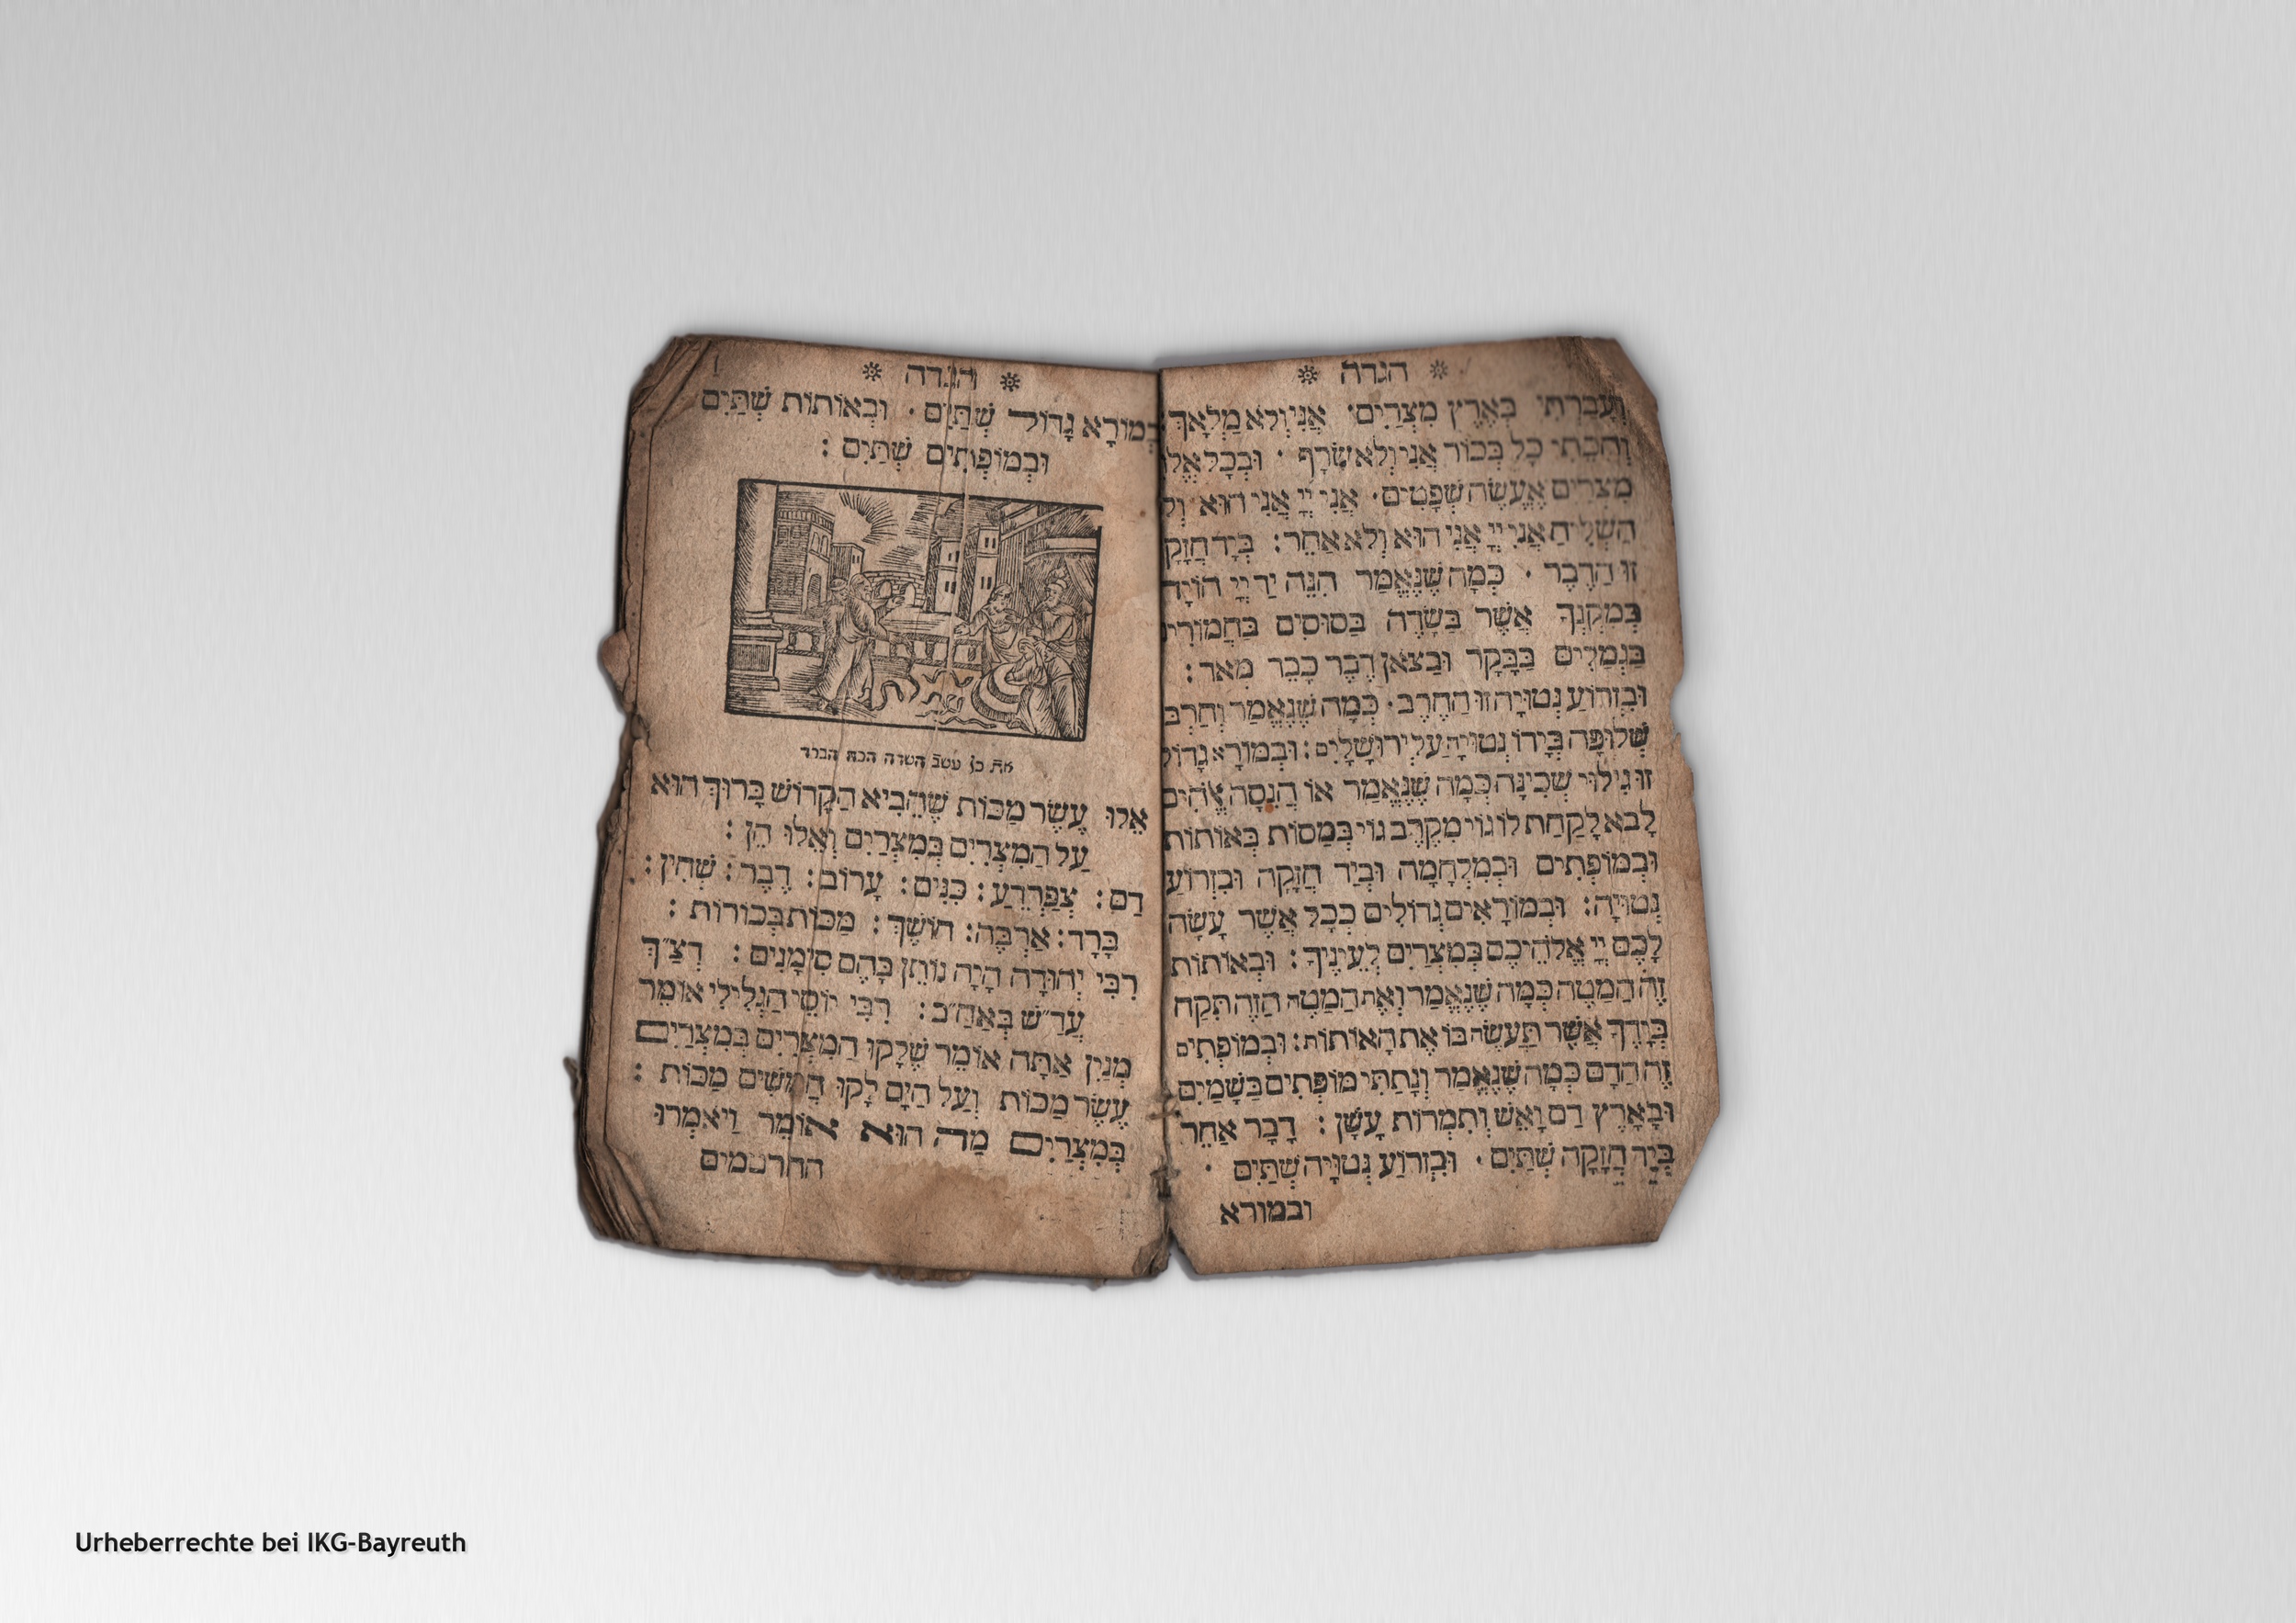 הגדה
וְעָבַרְתִּי בְּאֶרֶץ מִצְרַיִם׃ אֲנִי וְלֹא מַלְאָךְ
וְהִכֵּתִי כָל בְּכוֹר אֲנִי וְלֹא שָׂרָף ׃ וּבְכָל אֱלֹ
מִצְרַיִם אֶעֱשֶׂה שְׁפָטִים׃ אֲנִי יְיָ אֲנִי הוּא
הַשְּׁלִיחַ אֲנִי יְיָ אֲנִי הוּא וְלֹא אַחֵר: בְּיָד חֲזָקָ
זוֹ הַדֶּבֶר ׃ כְּמָה שֶׁנֶּאֱמַר הִנֵּה יַד יְיָ הוֹיָה
בְּמִקְנְךָ אֲשֶׁר בַּשָּׂדֶה בַּסּוּסִים בַּחֲמוֹרִים
בַּגְּמַלִּים בַּבָּקָר וּבַצֹּאן דֶּבֶר כָּבֵד מְאֹד:
וּבִזְרוֹעַ נְטוּיָה זוֹ הַחֶרֶב׃ כְּמָה שֶׁנֶּאֱמַר וְחַרְבּ
שְׁלוּפָה בְּיָדוֹ נְטוּיָה עַל יְרוּשָׁלָיִם: וּבְמוֹרָא גָּדוֹל
זוֹ גִּילּוּי שְׁכִינָה כְּמָה שֶׁנֶּאֱמַר אוֹ הֲנִסָּה אֱלֹהִים
לָבֹא לָקַחַת לוֹ גוֹי מִקֶּרֶב גּוֹי בְּמַסּוֹת בְּאוֹתוֹת
וּבְמוֹפְתִים וּבְמִלְחָמָה וּבְיַד חֲזָקָה וּבִזְרוֹעַ
נְטוּיָה: וּבְמוֹרָאִים גְּדוֹלִים כְּכָל אֲשֶׁר עָשָׂה
לָכֶם יְיָ אֱלֹהֵיכֶם בְּמִצְרַיִם לְעֵינֶיךָ: וּבְאוֹתוֹת
זֶה הַמַּטֶּה כְּמָה שֶׁנֶּאֱמַר וְאֶת הַמַּטֶּה הַזֶּה תִּקַּח
בְּיָדֶךָ אֲשֶׁר תַּעֲשֶׂה בּוֹ אֶת הָאוֹתוֹת: וּבְמוֹפְתִים
זֶה הַדָּם כְּמָה שֶׁנֶּאֱמַר וְנָתַתִּי מוֹפְתִים בַּשָּׁמַיִם
וּבָאָרֶץ דַּם וָאֵשׁ וְתִמְרוֹת עָשָׁן: דָּבָר אַחֵר
בְּיָד חֲזָקָה שְׁתַּיִם ׃ וּבִזְרוֹעַ נְטוּיָה שְׁתַּיִם ׃
ובמורא
הגדה
בְּמוֹרָא גָּדוֹל שְׁתַּיִם ׃ וּבְאוֹתוֹת שְׁתַּיִם
וּבְמוֹפְתִים שְׁתַּיִם:
את כל עשב השדה הכה הברד
אֵלוּ עֶשֶׂר מַכּוֹת שֶׁהֵבִיא הַקָּדוֹשׁ בָּרוּךְ הוּא
עַל הַמִּצְרִיִּים בְּמִצְרַיִם וְאֵלוּ הֵן:
דָּם: צְפַרְדֵּעַ: כִּנִּים: עָרוֹב: דֶּבֶר: שְׁחִין:
בָּרָד: אַרְבֶּה: חוֹשֶׁךְ: מַכּוֹת בְּכוֹרוֹת:
רַבִּי יְהוּדָה הָיָה נוֹתֵן בָּהֶם סִימָנִים: דְּצַ״ךְ
עֲדַ״שׁ בְּאַחַ״ב: רַבִּי יוֹסֵי הַגְּלִילִי אוֹמֵר
מְנַיִן אַתָּה אוֹמֵר שֶׁלָּקוּ הַמִּצְרִיִּים בְּמִצְרַיִם
עֶשֶׂר מַכּוֹת וְעַל הַיָּם לָקוּ חֲמִשִּׁים מַכּוֹת:
בְּמִצְרַיִם מַה הוּא אוֹמֵר וַיֹּאמְרוּ
החרטמים
Urheberrechte bei IKG-Bayreuth